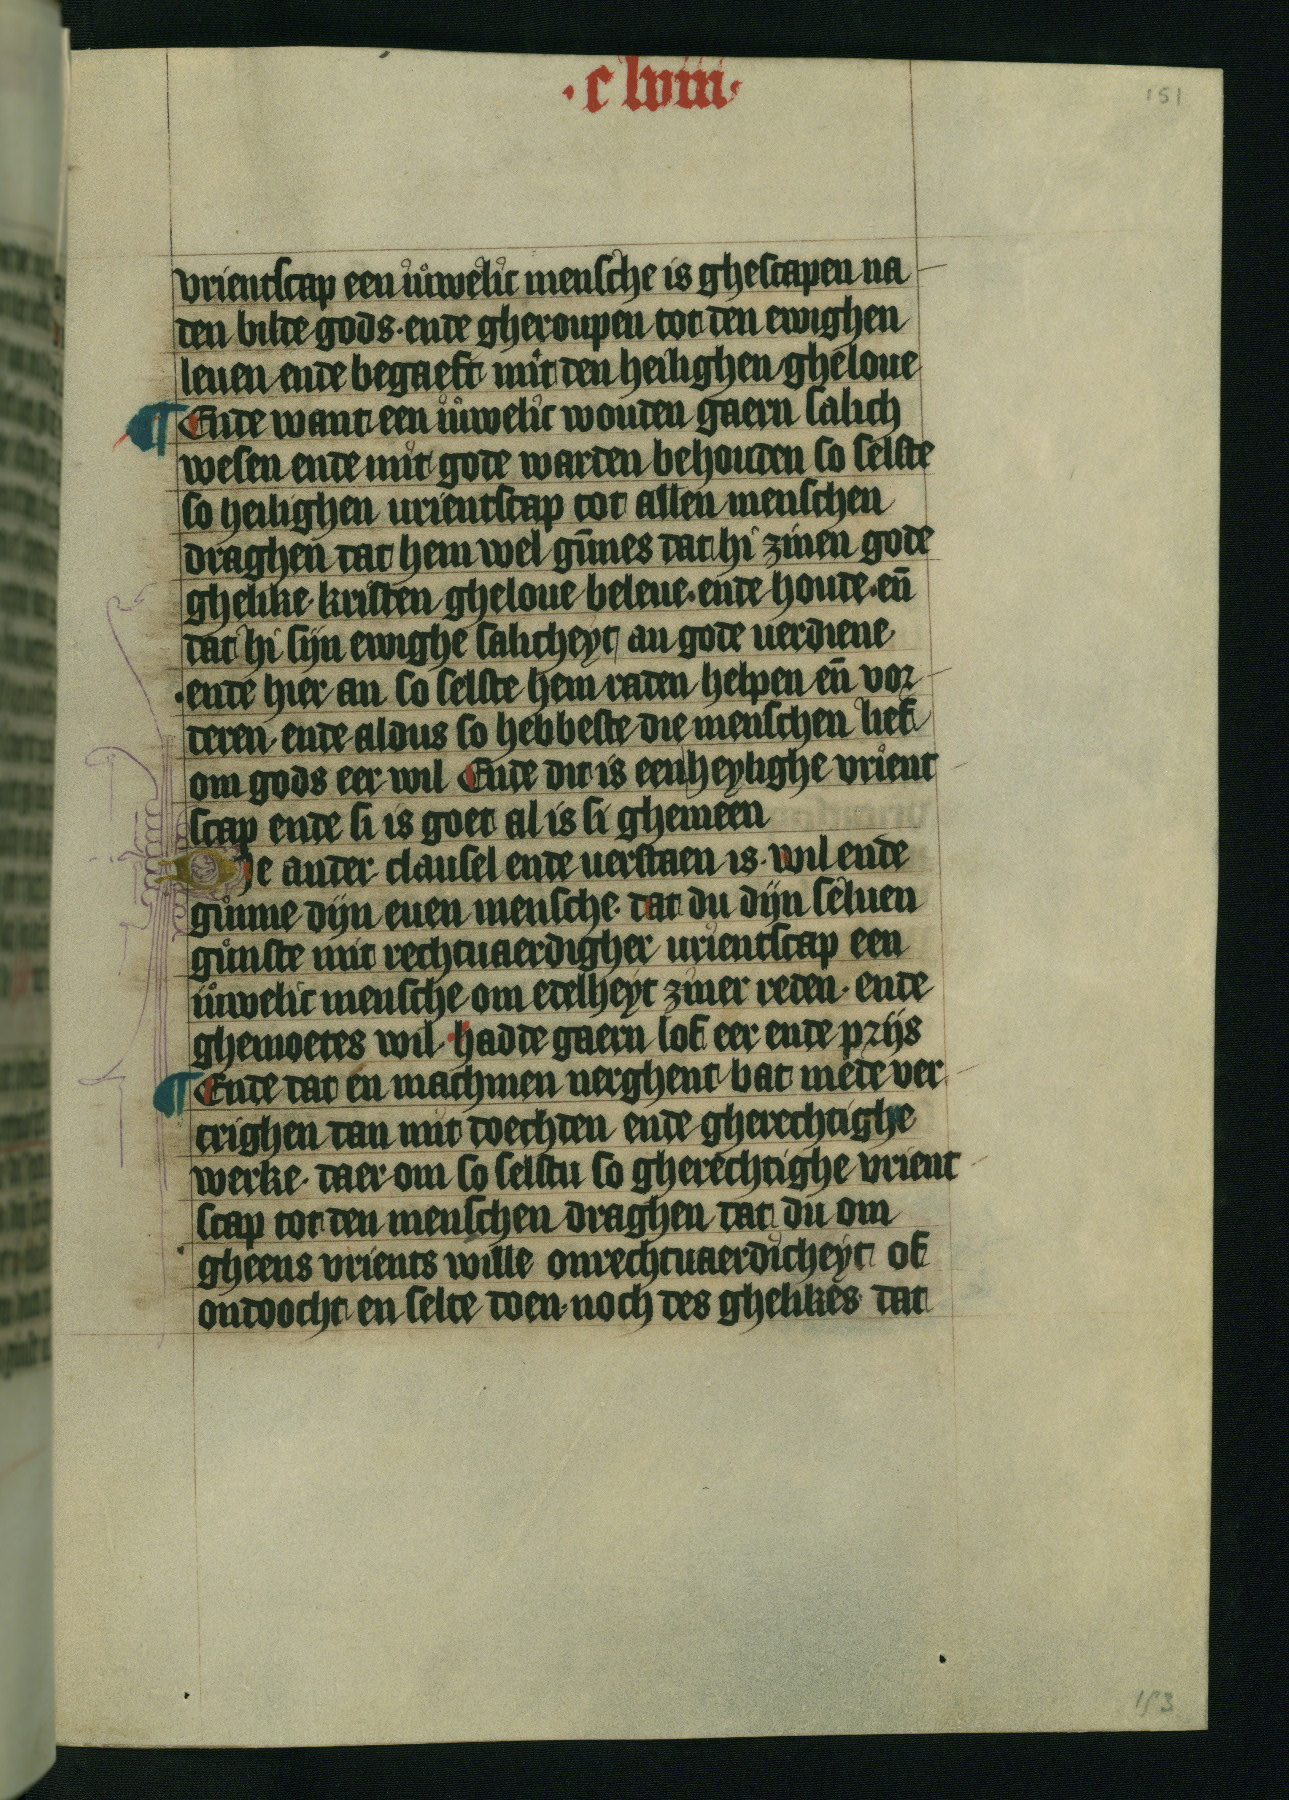 ·clviii·
151
vrientscap een iuwelic mensche is ghescapen na
den bilde gods· ende gheroupen tot den ewighen
leuen ende begaeft mit den heilighen gheloue
¶ Ende want een iuwelic wouden gaern salich
wesen ende mit gode warden behouden so selste
so heilighen urientscap tot allen menschen
draghen dat hem wel gūnes dat hi zinen gode
ghelike kristen gheloue beleue· ende houde· en̄
dat hi sijn ewighe salicheyt an gode uerdiene
·ende hier an so selste hem raden helpen en̄ vor
deren ende aldus so hebbeste die menschen lief
om gods eer wil Ende dit is een heylighe vrient
scap ende si is goet al is si ghemeen
De ander clausel ende uerstaen is· wil ende
gůnne dijn euen mensche· dat du dijn seluen
gůnste mit rechtuaerdigher urientscap een
iůwelic mensche om edelheyt zinre reden· ende
ghemoedes wil· hadde gaern lof eer ende prijs
¶ Ende dat en machmen nerghent bat mede ver
crighen dan mit doechden ende gherechtighe
werke· daer om so selstu so gherechtighe vrient
scap tot den menschen draghen dat du om
gheens vrients wille onrechtuaerdicheyt of
ondoocht en selte doen· noch des ghelikes dat
153